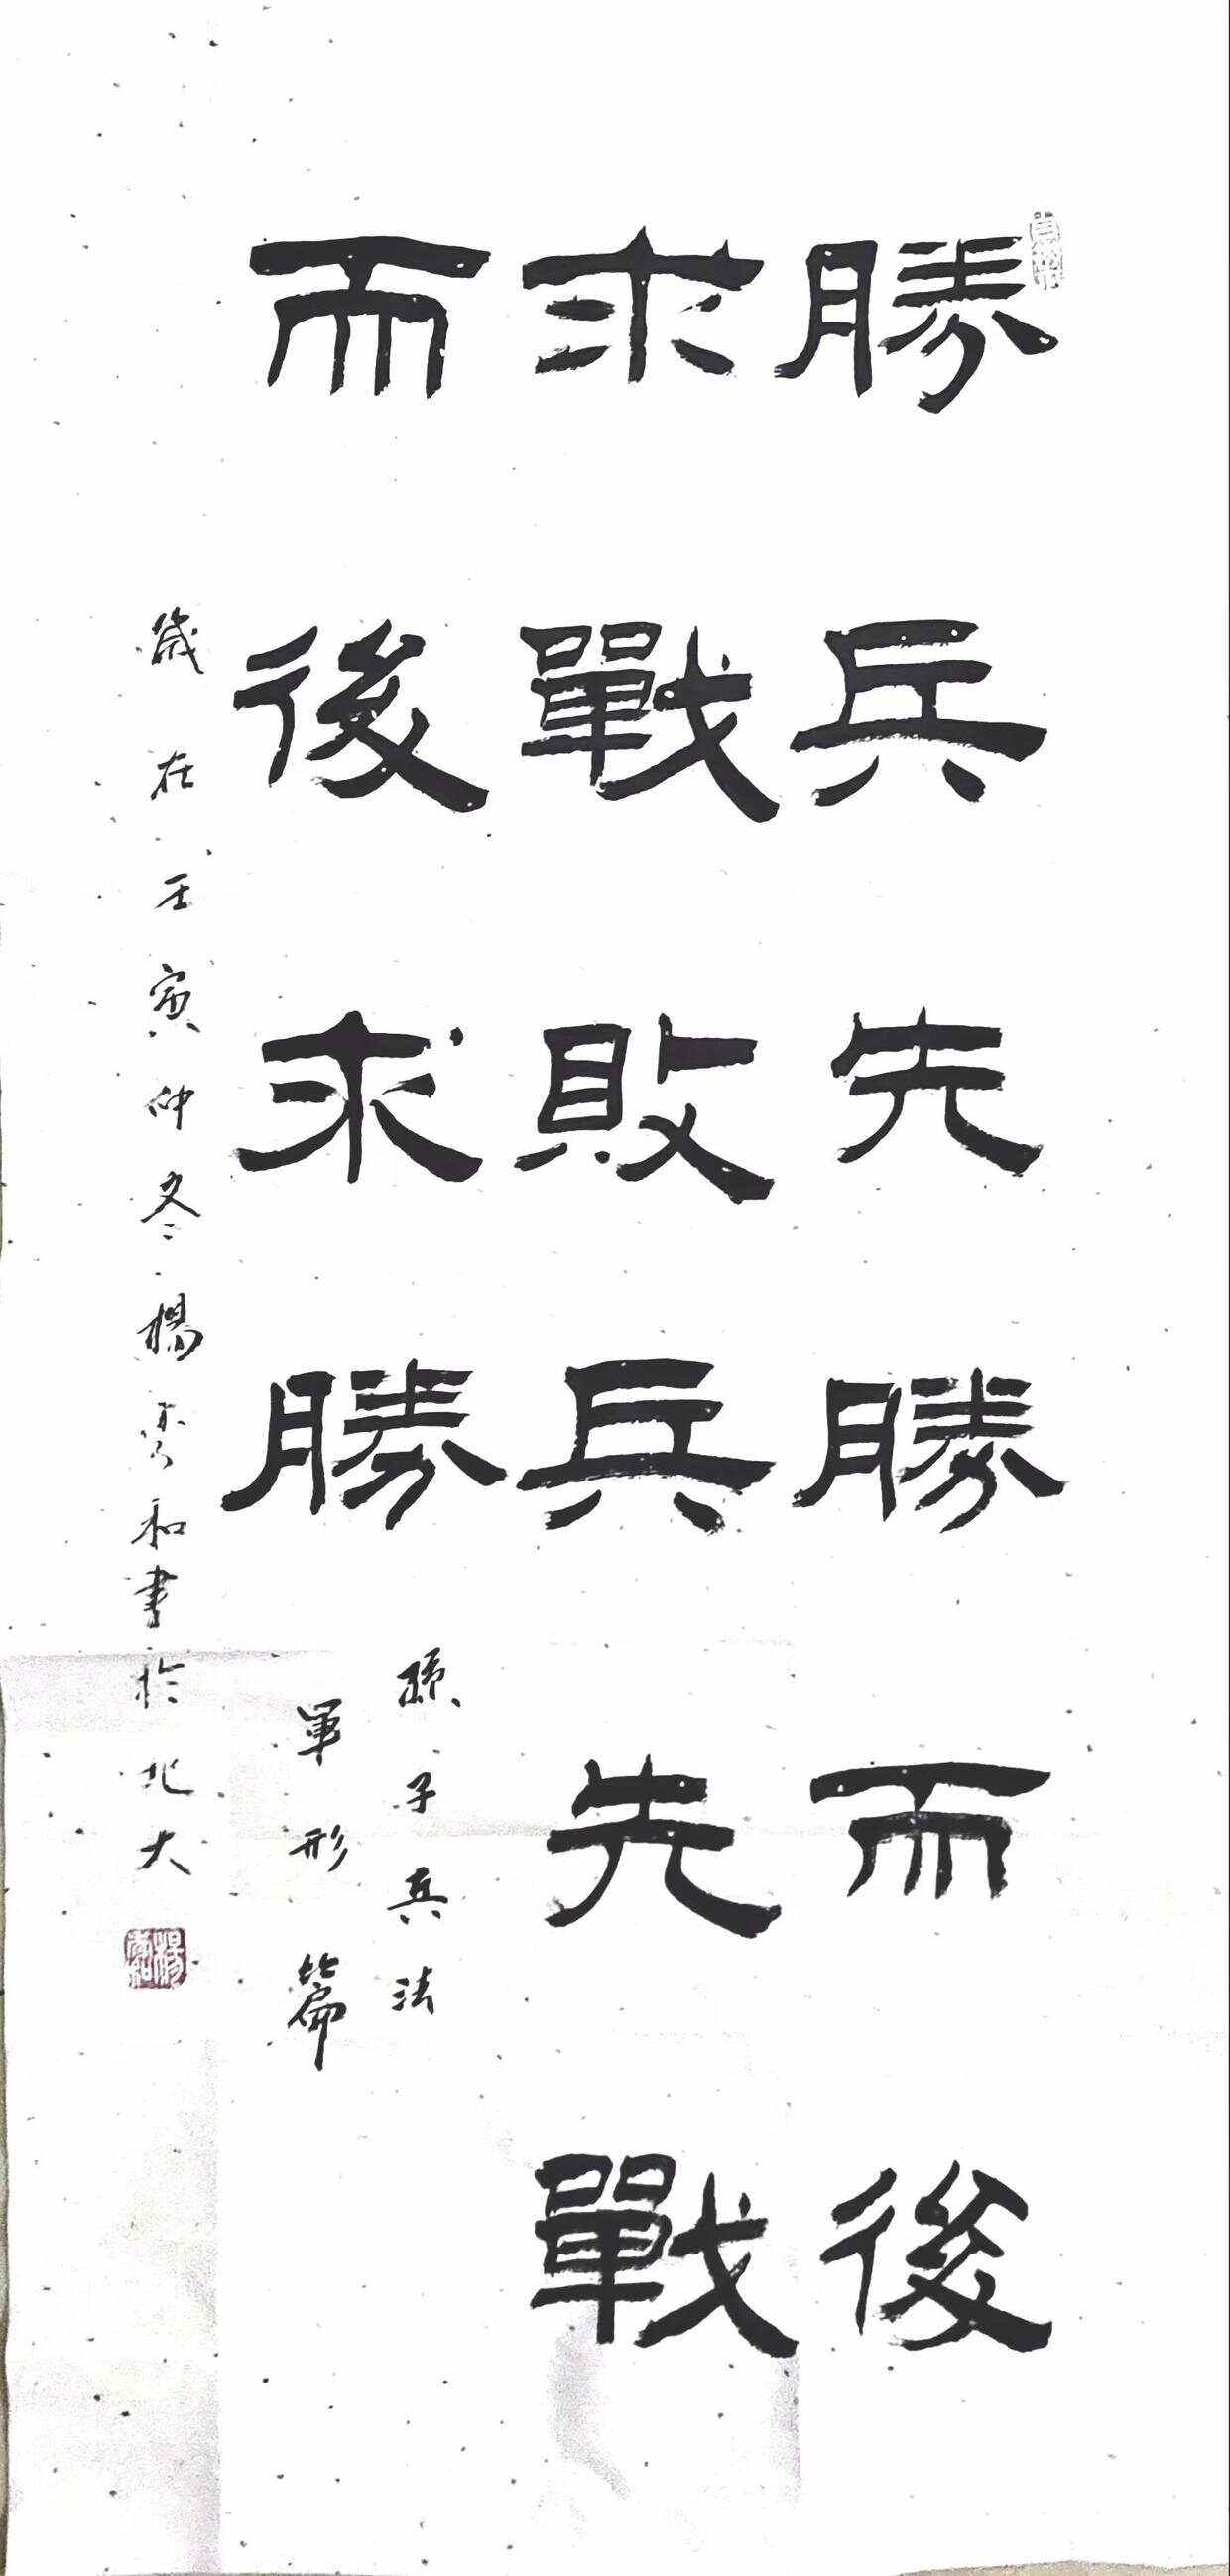 勝兵先勝而後
求戰敗兵先戰
而後求勝
孫子兵法
軍形篇
歲在壬寅仲冬楊雲和書於北大